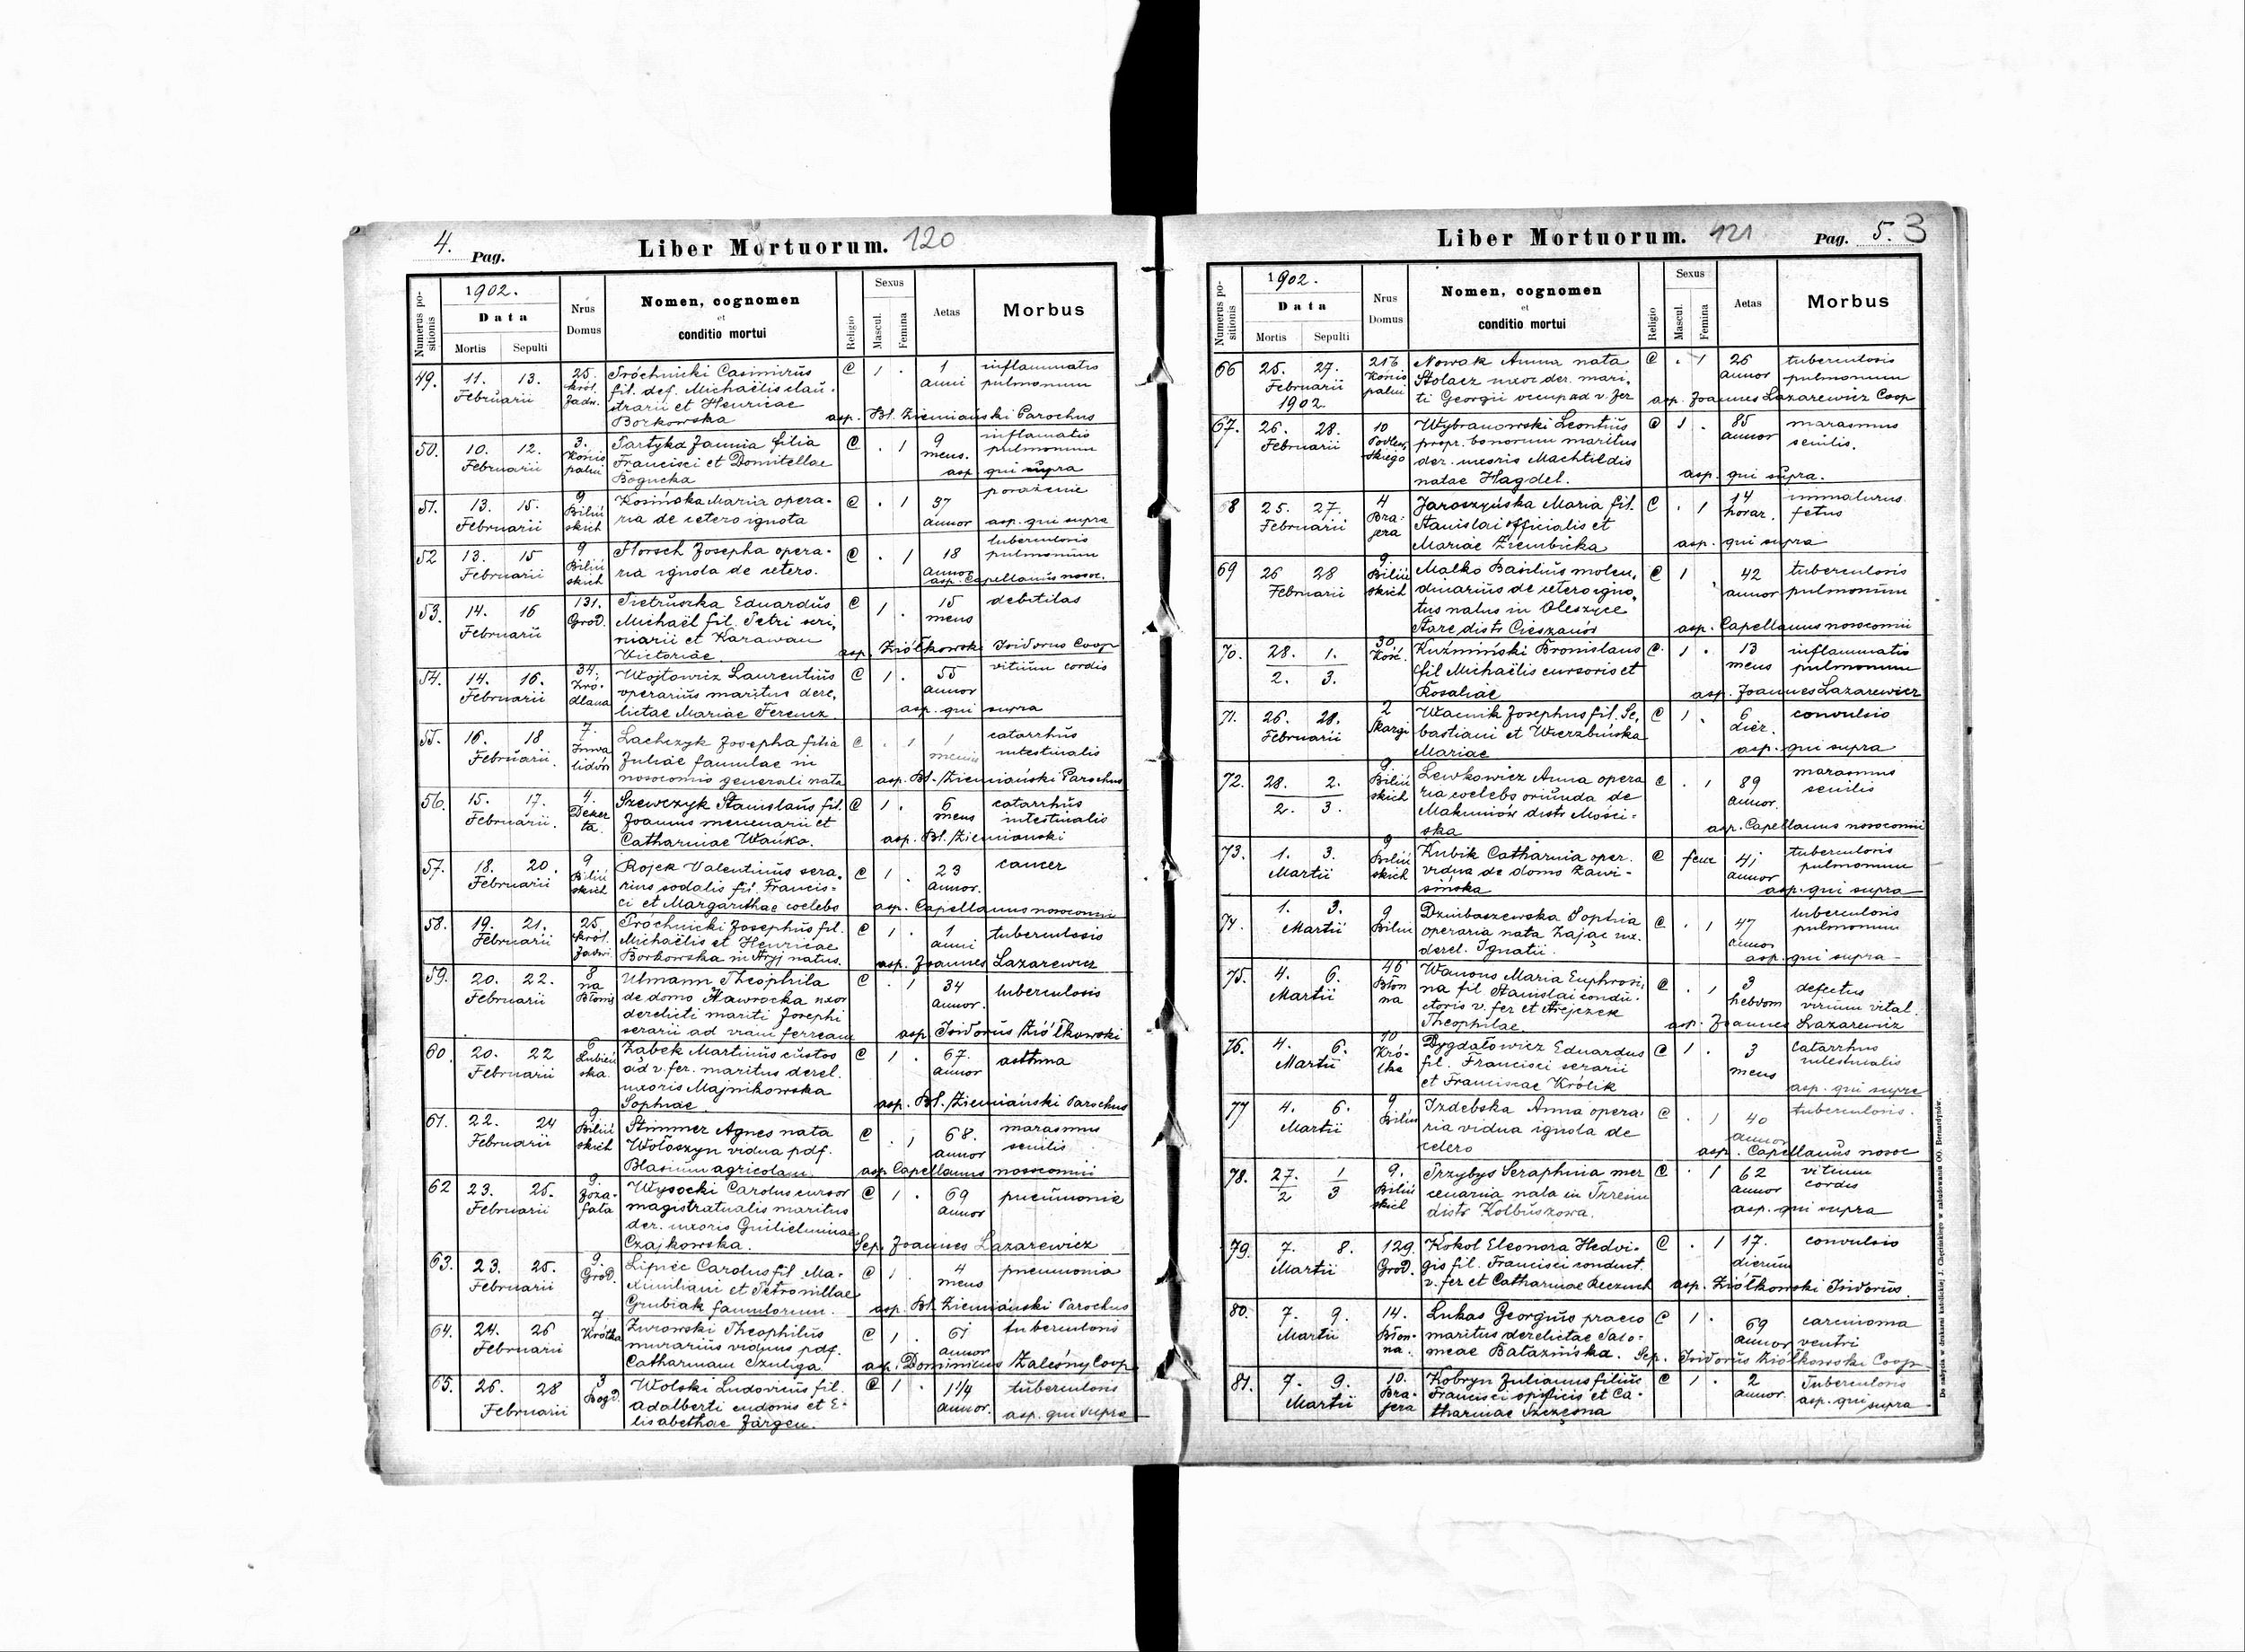 4. Pag. Liber Mortuorum. 120
Numerus positionis
1902.
Data
Mortis Sepulti
Nrus Domus
Nomen, cognomen
et
conditio mortui
Religio
Sexus
Mascul. Femina
Aetas
Morbus
49. 11. 13. 25. Próchnicki Casimirus C 1 . 1 inflammatio
Februarii król. fil. def. Michaëlis clau- anni pulmonum
Jadw. strarii et Henricae
Borkowska asp. Bl. Ziemiański Parochus
50. 10. 12. 3. Partyka Jannia filia C . 1 9 inflamatio
Februarii Konopalni Francisci et Domitellae mens. pulmonum
Bogucka asp. qui supra
51. 13. 15. 9 Kosińska Maria opera- C . 1 37 porażenie
Februarii Biliń ria de cetero ignota annor asp. qui supra
skich
52 13. 15 9 Florsch Josepha opera- C . 1 18 tuberculosis
Februarii Biliń ria ignota de cetero. annor pulmonum
skich asp. Capellanus nosoc.
53. 14. 16 131. Pietruszka Eduardus C 1 . 15 debilitas
Februarii Grod. Michaël fil. Petri scri- mens
niarii et Karawan
Victoriae asp. Ziółkowski Isidorus Coop
54. 14. 16. 34. Wojtowicz Laurentius C 1 . 55 vitium cordis
Februarii Źró- operarius maritus dere- annor
dlana lictae Mariae Ferencz asp. qui supra
55. 16. 18 7. Lachczyk Josepha filia C . 1 1 catarrhus
Februarii. Inwa Juliae famulae in mensis intestinalis
lidów nosocomio generali nata asp. Bl. Ziemiański Parochus
56. 15. 17. 4. Szewczyk Stanislaus fil. C 1 . 6 catarrhus
Februarii. Deker Joannis mercenarii et mens intestinalis
ta. Catharinae Wańko. asp. Bl. Ziemianski
57. 18. 20. 9 Rojek Valentinus sera- C 1 . 23 cancer
Februarii Biliń rius sodalis fil. Francis- annor.
skich ci et Margarithae coelebs asp. Capellanus nosocomii
58. 19. 21. 25. Próchnicki Josephus fil. C 1 . 1 tuberculosis
Februarii król. Michaëlis et Henricae anni
Jadwi. Borkowska in Stryj natus. asp. Joannes Lazarewicz
59. 20. 22. 8 Ulmann Theophila C . 1 34 tuberculosis
Februarii na de domo Nawrocka uxor annor.
Błonie derelicti mariti Josephi
serarii ad viam ferream asp. Isidorus Ziółkowski
60. 20. 22 6 Żabek Martinus custos C 1 . 67. asthma
Februarii Lubień ad v. fer. maritus derel. annor
ska. uxoris Majnikowska
Sophiae asp. Bl. Ziemiański Parochus
61. 22. 24 9. Stimmer Agnes nata C . 1 68. marasmus
Februarii Biliń Wołoszyn vidua pdf. annor senilis
skich Blasium agricolam asp Capellanus nosocomii
62 23. 25. 9. Wysocki Carolus cursor C 1 . 69 pneumonie
Februarii Joza- magistratualis maritus annor
fata der. uxoris Guilielminae
Czajkowska. Sep. Joannes Lazarewicz
63. 23. 25. 9. Lipiec Carolus fil Ma- C 1 . 4 pneumonia
Februarii Grod. ximiliani et Petronillae mens
Grubiak famulorum. asp. Bl. Ziemiański Parochus
64. 24. 26 7 Żurowski Theophilus C 1 . 61 tuberculosis
Februarii Krótka murarius viduus pdf. annor
Catharinam Szuliga asp. Dominicus Zaleóny Coop
65. 26. 28 3 Wolski Ludovicus fil. C 1 . 1 1/4 tuberculosis
Februarii Bogd. Adalberti cudonis et E- annor. asp. qui supra
lisabethae Järgen.
Liber Mortuorum. 121 Pag. 5. 3
Numerus positionis
1902.
Data
Mortis Sepulti
Nrus Domus
Nomen, cognomen
et
conditio mortui
Religio
Sexus
Mascul. Femina
Aetas
Morbus
66 25. 27. 216 Nowak Anna nata C . 1 26 tuberculosis
Februarii Konopalni Stolacz uxor der. mari- annor pulmonum
1902. ti Georgii occup ad v. fer asp. Joannes Lazarewicz Coop
67. 26. 28. 10 Wybranowski Leontius C 1 . 85 marasmus
Februarii Podlew- propr. bonorum maritus annor senilis.
skiego der. uxoris Machtildis
natae Hagdel. asp. qui supra.
68 25. 27. 4 Jaroszyńska Maria fil. C . 1 14 immaturus
Februarii Bra- Stanislai officialis et horar. fetus
jera Mariae Ziembicka asp. qui supra
69 26 28 9. Malko Basilius molen- C 1 . 42 tuberculosis
Februarii Biliń dinarius de cetero igno- annor pulmonum
skich tus natus in Oleszyce
Stare distr Cieszanów asp. Capellanus nosocomii
70. 28. 1. 30 Kuźmiński Bronislaus C 1 . 13 inflammatio
2. 3. Kość. fil Michaëlis cursoris et mens pulmonum
Rosaliae asp. Joannes Lazarewicz
71. 26. 28. 2 Wacnik Josephus fil. Se- C 1 . 6 convulsio
Februarii Skargi bastiani et Wierzbińska dier.
Mariae asp. qui supra
72. 28. 2. 9. Lewkowicz Anna opera C . 1 89 marasmus
2. 3. Biliń ria coelebs oriunda de annor. senilis
skich Makuniów distr Mości-
ska asp. Capellanus nosocomii
73. 1. 3. 9 Kubik Catharina oper. C fem 41 tuberculosis
Martii Biliń vidua de domo Zawi- annor pulmonum
skich sińska asp. qui supra
74. 1. 3. 9 Dziubaszewska Sophia C . 1 47 tuberculosis
Martii Biliń operaria nata Zając ux. annor pulmonum
derel. Ignatii. asp. qui supra
75. 4. 6. 46 Wanous Maria Euphrosi- C . 1 3 defectus
Martii Błon na fil. Stanislai condu- hebdom virium vital.
na ctoris v. fer et Arejczek
Theophilae. asp. Joannes Lazarewicz
76. 4. 6. 10 Bygdałowicz Eduardus C 1 . 3 catarrhus
Martii Kró- fil. Francisci serarii mens intestinalis
lka et Franciscae Królik asp. qui supra
77 4. 6. 9 Izdebska Anna opera- C . 1 40 tuberculosis.
Martii Biliń ria vidua ignota de annor
cetero asp. Capellanus nosoc
78. 27. 1 9. Przybys Seraphina mer C . 1 62 vitium
2 3 Biliń cenaria nata in Trzesin annor cordis
skich distr Kolbuszowa. asp. qui supra
79. 7. 8. 129. Kokol Eleonora Hedvi- C . 1 17. convulsio
Martii Grod. gis fil. Francisci conduct. dierum
v. fer et Catharinae Reczuch asp. Ziółkowski Isidorus.
80. 7. 9. 14. Lukas Georgius praeco C 1 . 69 carcinoma
Martii Błon- maritus derelictae Salo- annor ventri
na. meae Batazińska. Sep. Isidorus Ziółkowski Coop
81. 7. 9. 10. Kobryn Julianus filius C 1 . 2 Tuberculosis
Martii Bra- Francisci opificis et Ca- annor. asp. qui
jera tharinae Szczęsna supra
Do nabycia w drukarni katolickiej J. Chęcińskiego w zabudowaniu OO. Bernardynów.